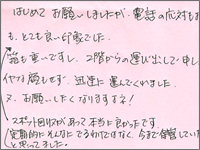 はじめて お願いしましたが、電話の応対も
も、とても良い印象でした。
箱も重いですし、2階からの運び出しで申し
イヤな顔もせず、迅速に運んでくれました。
又、お願いしたくなりますネ!
スポット回収があって本当に良かったです。
定期的にそんなにでるわけではなく、今まで保管していた
と思ってました。